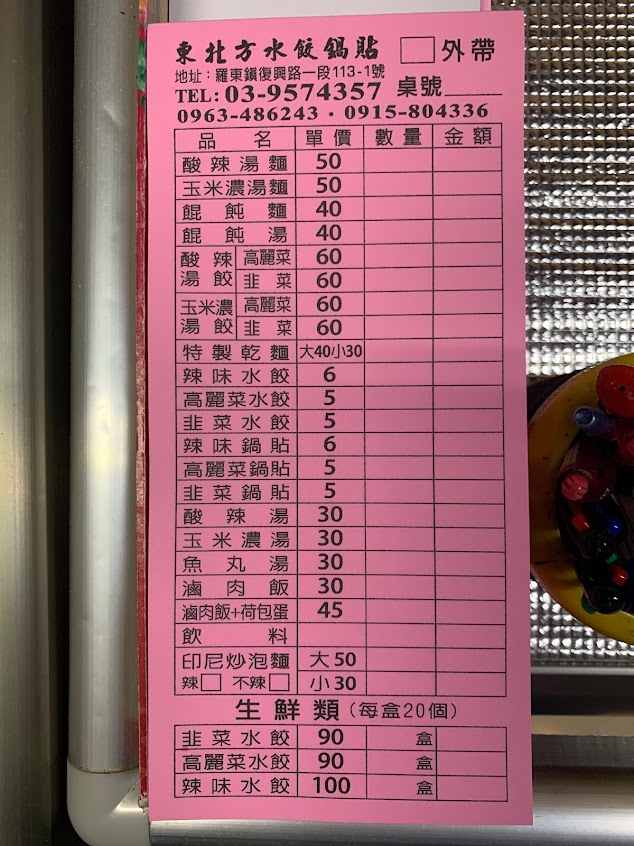 東北方水餃鍋貼 □外帶
地址：羅東鎮復興路一段113-1號
TEL: 03-9574357 桌號
0963-486243・0915-804336
品名 單價 數量 金額
酸辣湯麵 50
玉米濃湯麵 50
餛飩麵 40
餛飩湯 40
酸辣湯餃 高麗菜 60
韭菜 60
玉米濃湯餃 高麗菜 60
韭菜 60
特製乾麵 大40小30
辣味水餃 6
高麗菜水餃 5
韭菜水餃 5
辣味鍋貼 6
高麗菜鍋貼 5
韭菜鍋貼 5
酸辣湯 30
玉米濃湯 30
魚丸湯 30
滷肉飯 30
滷肉飯+荷包蛋 45
飲料
印尼炒泡麵 大50
辣□ 不辣□ 小30
生鮮類(每盒20個)
韭菜水餃 90 盒
高麗菜水餃 90 盒
辣味水餃 100 盒